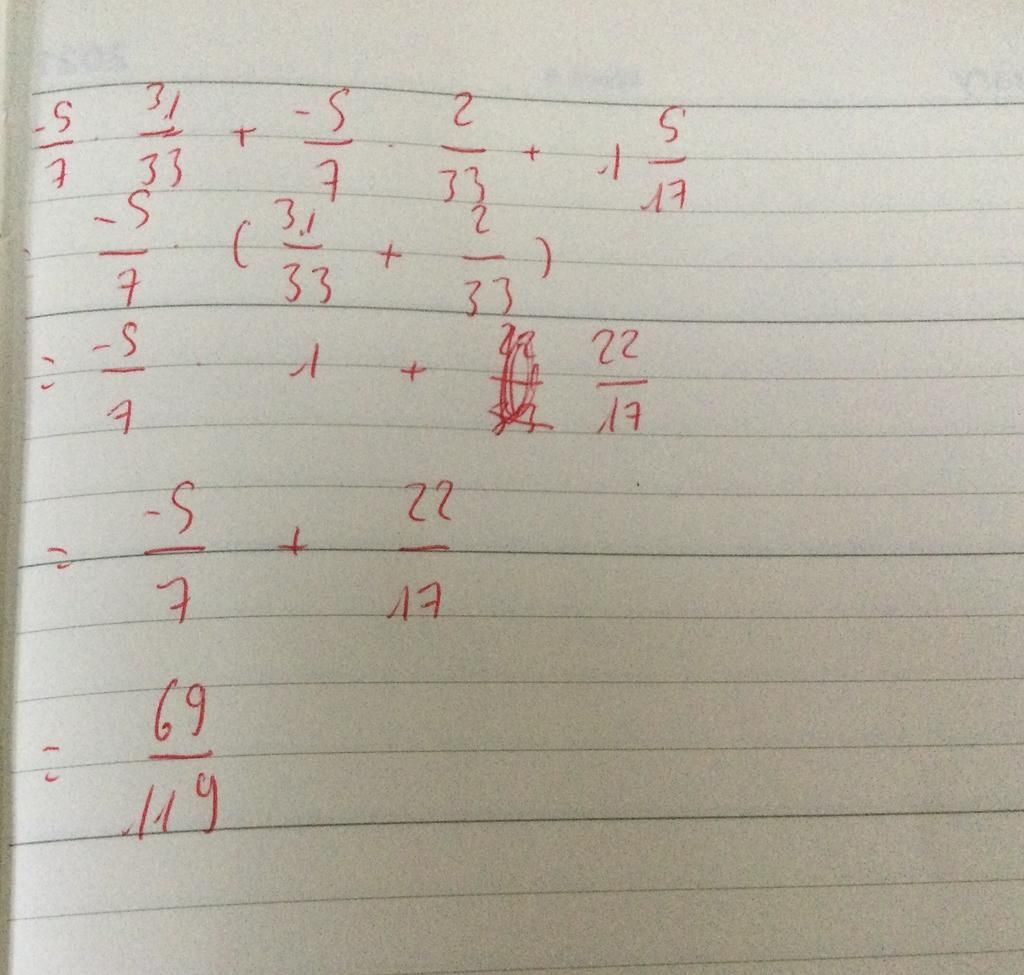 -5/7 . 31/33 + -5/7 . 2/33 + 1 5/17
-5/7 . (31/33 + 2/33)
= -5/7 . 1 + 22/17
= -5/7 + 22/17
= 69/119